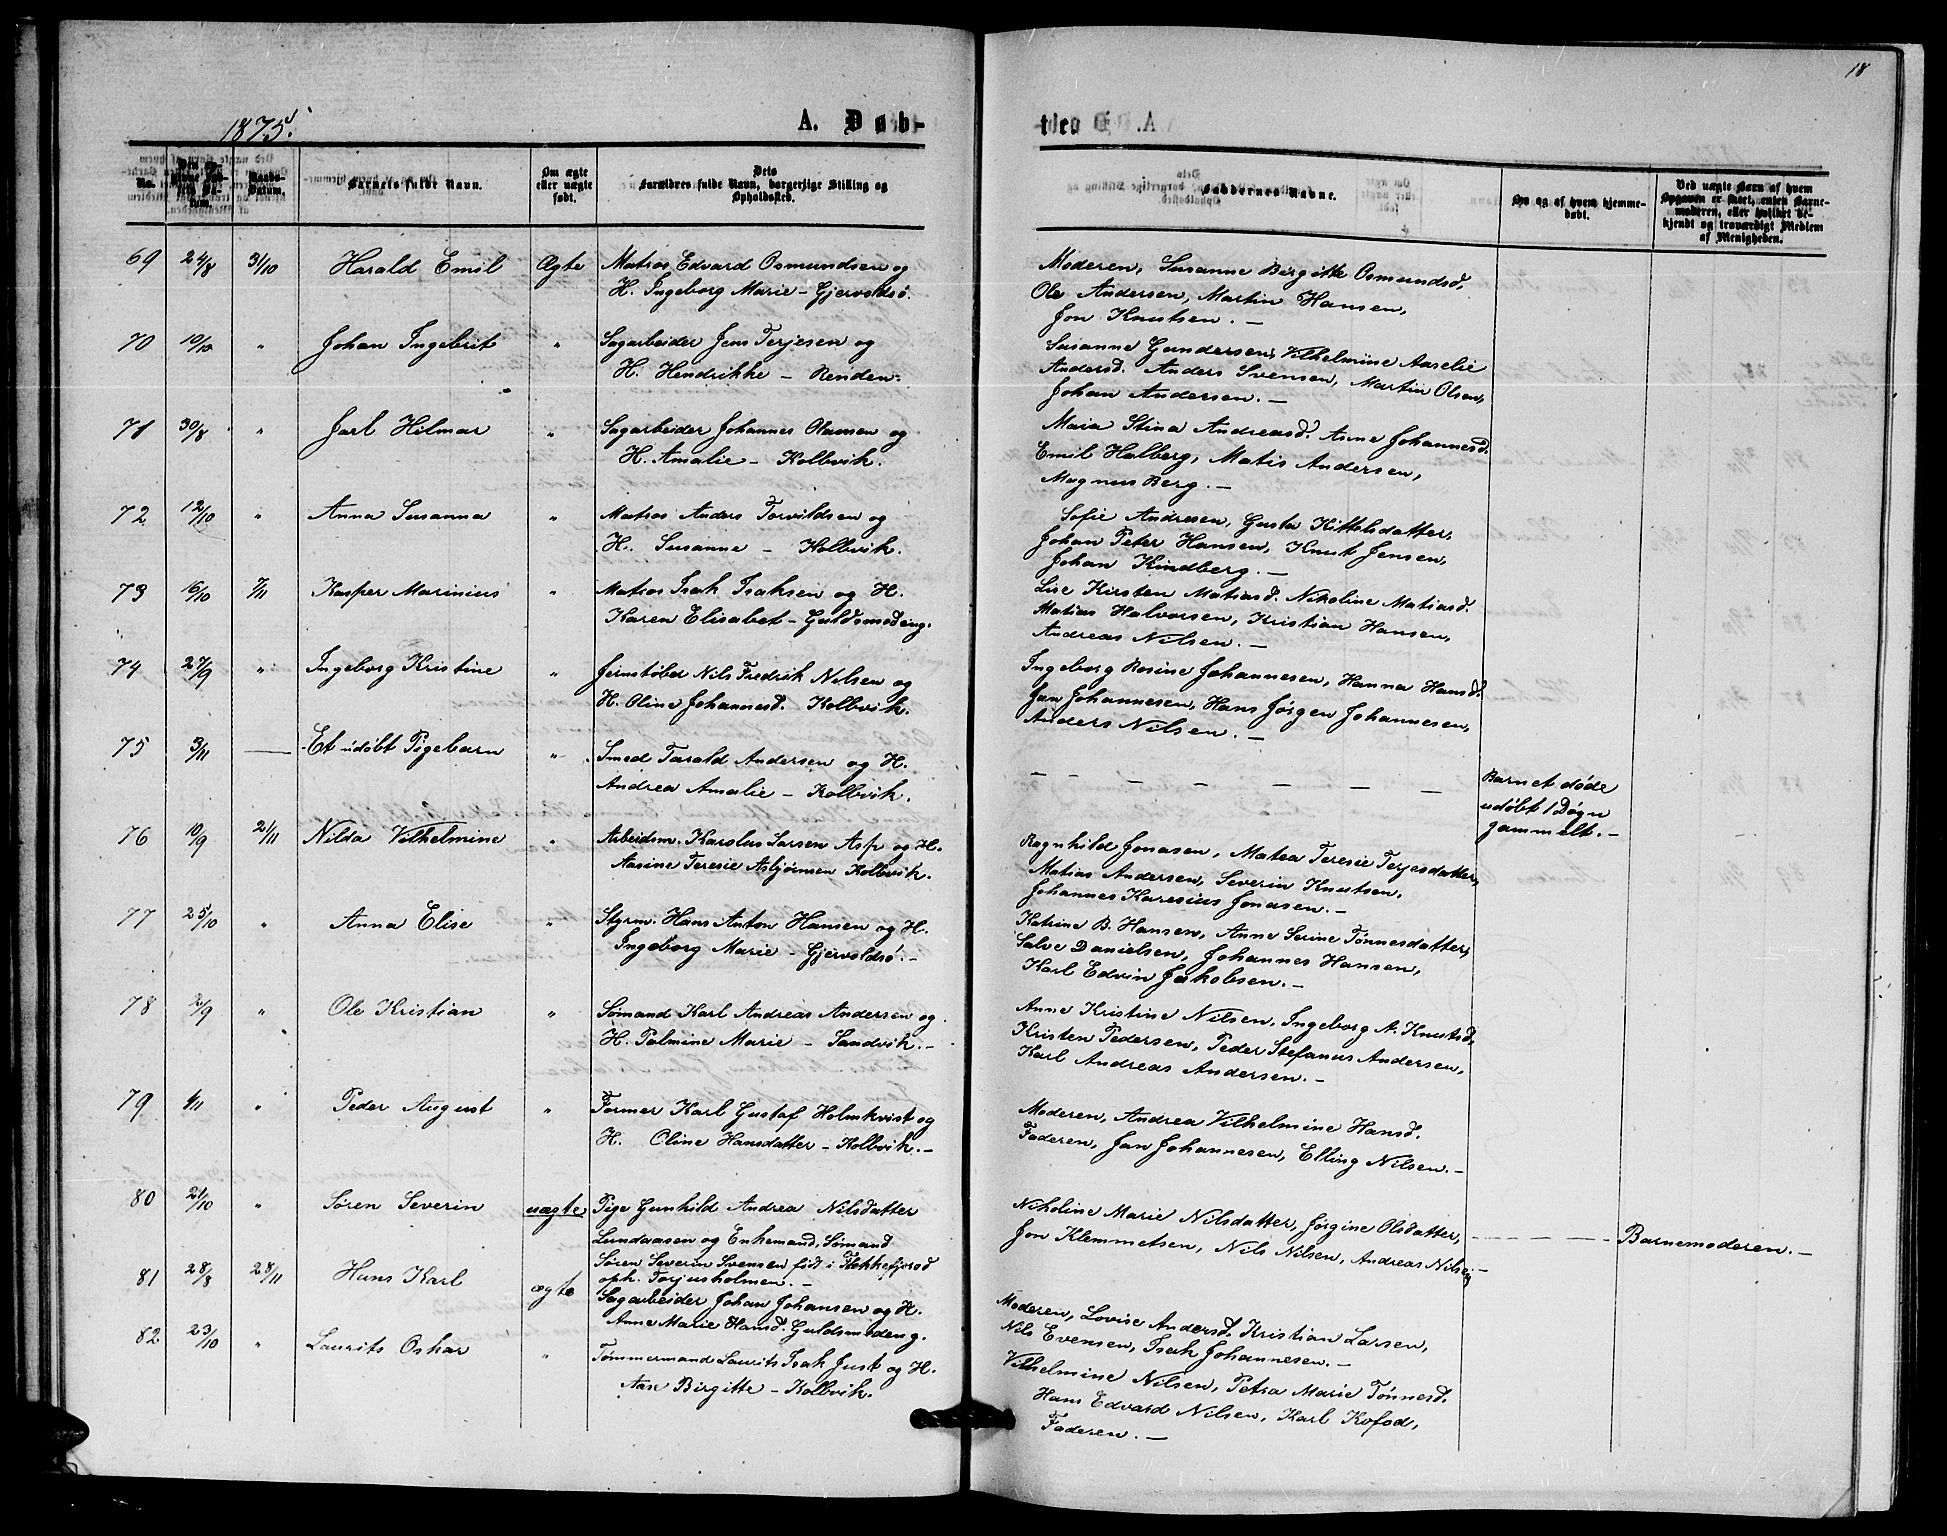 18
1875.
A. Døb-
No.
Daabs-
Datum.
Barnets fulde Navn.
Om ægte
eller uægte
født.
Dets
Forældres fulde Navn, borgerlige Stilling og
Opholdssted.
Faddernes Navne.
Om og af hvem hjemme-
døbt.
Ved uægte Barn af hvem
Opgaven er skeet, enten Barne-
moderen, eller hvilket be-
kjendt og troværdigt Medlem
af Menigheden.
69 24/8 31/10 Harald Emil Ægte Matros Edvard Osmundsen og
H. Ingeborg Marie - Gjervoldsø.
Moderen, Susanne Birgitte Osmundsd.
Ole Andersen, Martin Hansen,
Jon Knutsen. —
70 10/10 " Johan Ingebrit " Sagarbeider Jens Terjesen og
H. Hendrikke - Renden.
Susanne Gundersen, Vilhelmine Aaselie
Andersd. Anders Svensen, Martin Olsen,
Johan Andersen. —
71 30/8 " Jarl Hilmar " Sagarbeider Johannes Olausen og
H. Amalie - Kolbvik.
Maia Stina Andreasd. Anne Johannesd.
Emil Halberg, Matis Andersen,
Magnus Berg. —
72 12/10 " Anna Susanna " Matros Anders Torvildsen og
H. Susanne - Kolbvik.
Sofie Andresen, Gusta Kittelsdatter,
Johan Peter Hansen, Knut Jensen,
Johan Kindberg. —
73 16/10 7/11 Kasper Marinius " Matros Isak Isaksen og H.
Karen Elisabet - Guldsmedeng.
Lise Kirsten Matiasd. Nikoline Matiasd.
Matias Halvorsen, Kristian Hansen,
Andreas Nilsen. —
74 27/9 " Ingeborg Kristine " Jernstøber Nils Fredrik Nilsen og
H. Oline Johannesd. Kolbvik.
Ingeborg Rosine Johannesen, Hanna Hansd.
Jan Johannesen, Hans Jørgen Johannesen,
Anders Nilsen. —
75 3/11 — Et udøbt Pigebarn " Smed Tarald Andersen og H.
Andrea Amalie - Kolbvik.
— — — — — — —
Barnet døde
udøbt 1 Døgn
gammelt. —
76 10/9 21/11 Nilda Vilhelmine " Arbeidsm. Karslus Larsen Asp og H.
Aasine Teresie Asbjørnsen Kolbvik.
Ragnhild Jonasen, Matea Teresie Terjesdatter,
Matias Andersen, Severin Knutsen,
Johannes Karesius Jonasen. —
77 25/10 " Anna Elise " Styrm. Hans Anton Hansen og H.
Ingeborg Marie - Gjervoldsø. -
Katrine B. Hansen, Anne Serine Tønnesdatter,
Salve Danielsen, Johannes Hansen,
Karl Edvin Jakobsen. —
78 2/9 " Ole Kristian " Sømand Karl Andreas Andersen og
H. Palmine Marie - Sandvik. -
Anne Kristine Nilsen, Ingeborg A. Knutsd.
Kristen Pedersen, Peder Stefanus Andersen,
Karl Andreas Andersen. —
79 4/11 " Peder August " Former Karl Gustaf Holmkvist og
H. Oline Hansdatter - Kolbvik. -
Moderen, Andrea Vilhelmine Hansd.
Faderen, Jan Johannesen, Elling Nilsen. —
80 21/10 " Søren Severin uægte Pige Gunhild Andrea Nilsdatter
Lundaasen og Enkemand, Sømand
Søren Severin Svensen født i Flekkefjord
oph. Torjusholmen. —
Nikoline Marie Nilsdatter, Jørgine Olsdatter,
Jon Klemmetsen, Nils Nilsen, Andreas Nilsen. —
Barnemoderen. —
81 28/8 28/11 Hans Karl ægte Sagarbeider Johan Johansen og H.
Anne Marie Hansd. Guldsmedeng.
Moderen, Lovise Andersd. Kristian Larsen,
Nils Evensen, Isak Johannesen. —
82 23/10 " Laurits Oskar " Tømmermand Laurits Isak Just og H.
Aase Birgitte - Kolbvik.
Vilhelmine Nilsen, Petra Marie Tønnesd.
Hans Edvard Nilsen, Karl Kofod,
Faderen. —